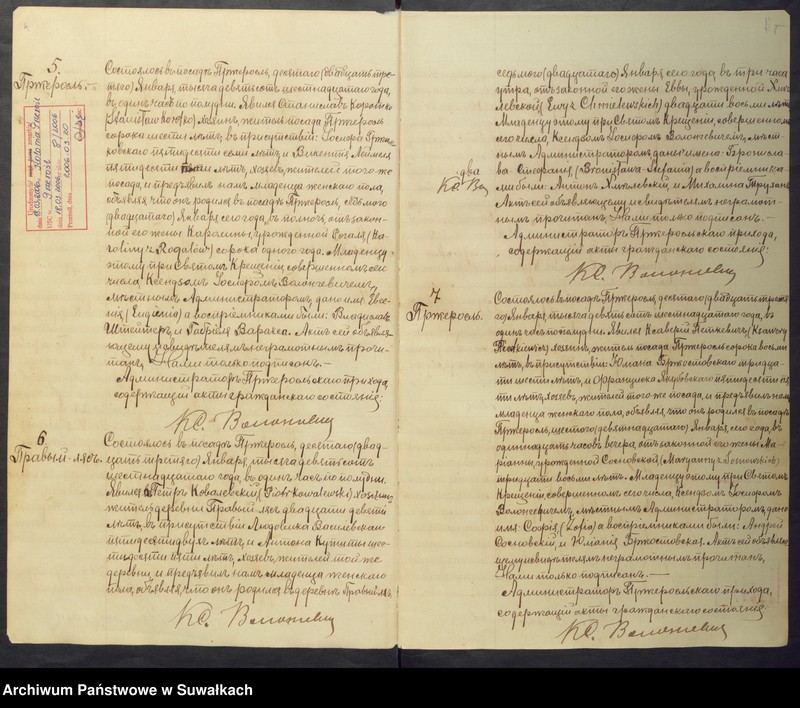 5.
Пржеросль.
Состоялось въ посадѣ Пржеросль, десятаго (двадцать тре-
тьяго) Января, тысяча девятьсотъ шестнадцатаго года,
въ одинъ часъ по полудни. Явился Станиславъ
(Stanisław), хозяинъ, житель посада Пржеросль
сорока шести лѣтъ, въ присутствіи: Іосифа
пятидесяти семи лѣтъ, и Викентія
пятидесяти лѣтъ, хозяевъ, жителей того же
посада, и предъявилъ намъ младенца женскаго пола,
объявляя что онъ родился въ посадѣ Пржеросль, седьмого
(двадцатаго) Января сего года, въ полночь, отъ закон-
ной его жены Каролины, урожденной Рогаля (Ka-
roliny z Rogalów) сорока одного года. Младенцу
этому при Святомъ Крещеніи, совершенномъ сего
числа, Ксендзомъ Іосифомъ Волонсевичемъ,
мѣстнымъ Администраторомъ, дано имя: Евге-
нія (Eugenia) а воспріемниками были: Владиславъ
и Варакса. Актъ сей объявля-
ющему и свидѣтелямъ неграмотнымъ прочи-
танъ, Нами только подписанъ. —
Администраторъ Пржеросльскаго прихода,
содержащій акты гражданскаго состоянія:
КС. Волонсевичъ
6
Правый-лясъ.
Состоялось въ посадѣ Пржеросль, десятаго (двад-
цать третьяго) Января, тысяча девятьсотъ
шестнадцатаго года, въ одинъ часъ по полудни.
Явился Петръ Ковалевскій (Piotr Kowalewski) хозяинъ
житель деревни Правый лясъ двадцати девяти
лѣтъ, въ присутствіи Людовика
пятидесяти двухъ лѣтъ, и Антона шес-
тидесяти пяти лѣтъ, хозяевъ, жителей той же
деревни, и предъявилъ намъ младенца женскаго
пола, объявляя, что онъ родился въ деревнѣ Правый лясъ
КС. Волонсевичъ
седьмого (двадцатаго) Января сего года, въ три часа
утра, отъ законной его жены Еввы, урожденной Хми-
левской (Ewy z Chmielewskich) двадцати восьми лѣтъ
Младенцу этому при Святомъ Крещеніи, совершенномъ
сего числа, Ксендзомъ Іосифомъ Волонсевичемъ, мѣст-
нымъ Администраторомъ даны имена: Бронисла-
ва-Стефанія (Bronisława-Stefania) а воспріемника-
ми были: Антонъ Хмилевскій, и Михалина
Актъ сей объявляющему и свидѣтелямъ неграмот-
нымъ прочитанъ, Нами только подписанъ. —
Администраторъ Пржеросльскаго прихода,
содержащій акты гражданскаго состоянія:
КС. Волонсевичъ
два
7
Пржеросль.
Состоялось въ посадѣ Пржеросль, десятаго (двадцать третья-
го) Января, тысяча девятьсотъ шестнадцатаго года, въ
одинъ часъ по полудни. Явился Ксаверій Петкевичъ (Ksawery
Pietkiewicz) хозяинъ, житель посада Пржеросль сорока восьми
лѣтъ, въ присутствіи: Юліана Бржостовскаго тридца-
ти шести лѣтъ, и Франциска Якубовскаго пятидесяти
лѣтъ, хозяевъ, жителей того же посада, и предъявилъ намъ
младенца женскаго пола, объявляя, что онъ родился въ посадѣ
Пржеросль, шестого (девятнадцатаго) Января, сего года, въ
одиннадцать часовъ вечера, отъ законной его жены Ма-
ріанны, урожденной Сосновской, (Maryanny z Sosnowskich)
тридцати восьми лѣтъ. Младенцу этому при Святомъ
Крещеніи, совершенномъ сего числа, Ксендзомъ Іосифомъ
Волонсевичемъ, мѣстнымъ Администраторомъ, дано
имя: Софія (Zofia) а воспріемниками были: Андрей
Сосновскій, и Юліанія Бржостовская. Актъ сей объявляю-
щему и свидѣтелямъ неграмотнымъ прочитанъ,
Нами только подписанъ. —
Администраторъ Пржеросльскаго прихода,
содержащій акты гражданскаго состоянія:
КС. Волонсевичъ
Archiwum Państwowe w Suwałkach